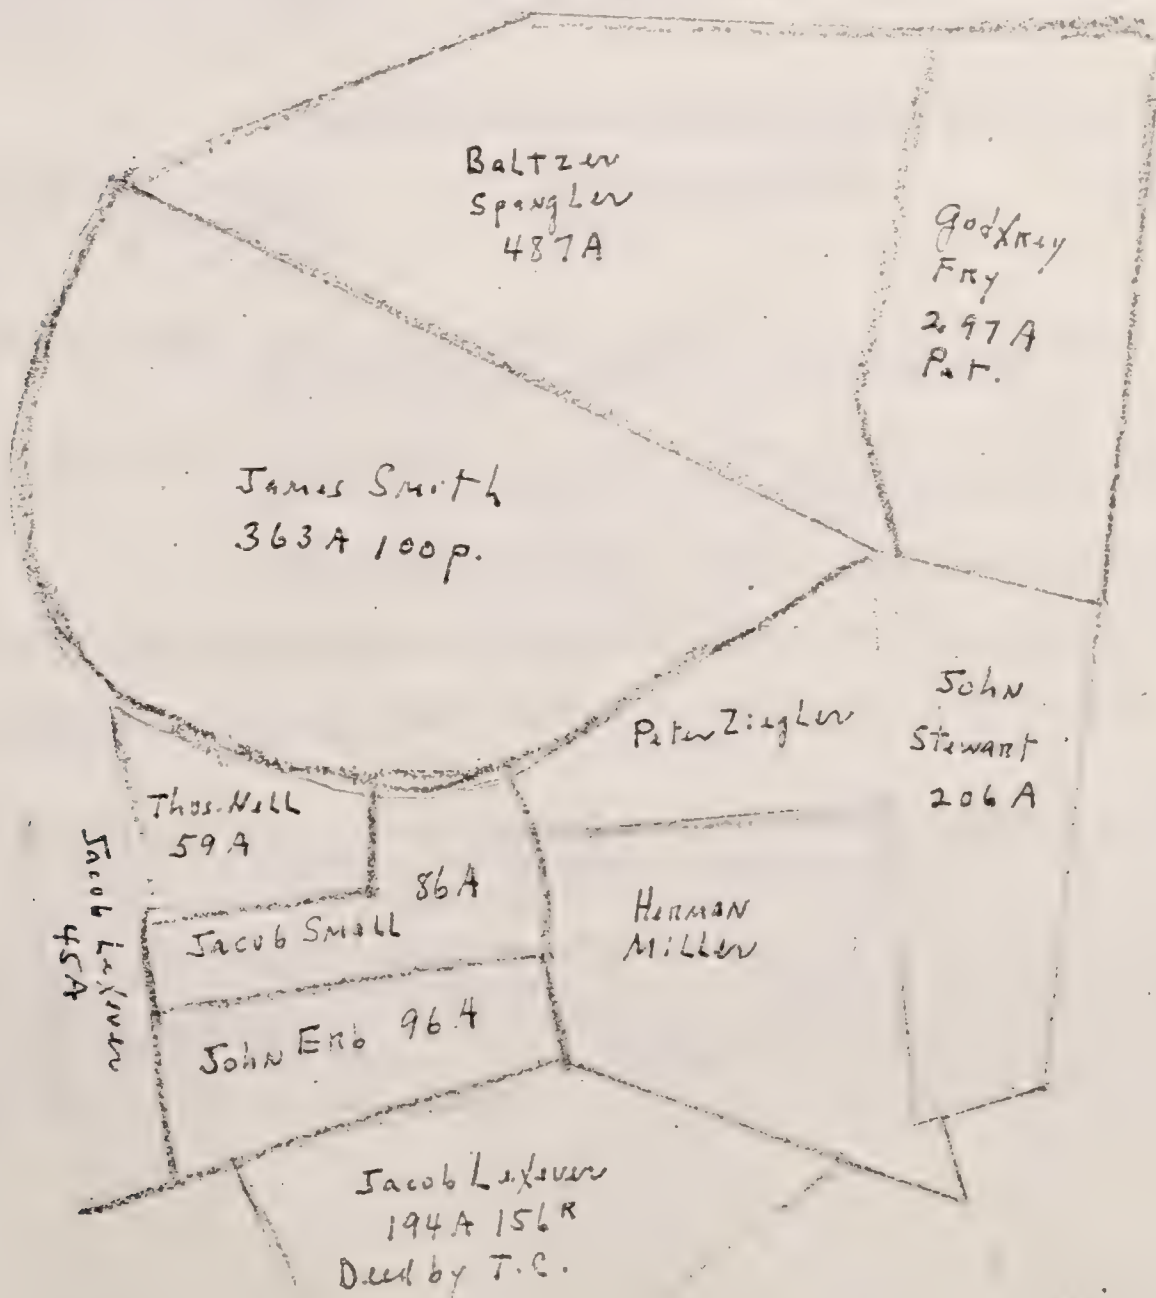 Baltzer
Spangler
487A
Godfrey
Fry
297A
Pat.
James Smith
363A 100p.
Peter Ziegler
John
Stewart
206A
Thos. Nell
59A
86A
Jacob Small
Jacob Lefever
45A
Herman
Miller
John Erb 96A
Jacob Lefever
194A 156R
Deed by T.C.